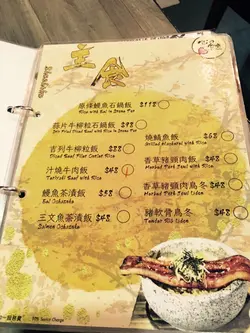 主食
原條鰻魚石鍋飯 $118
Rice with Eel in Stone Pot
蒜片牛柳粒石鍋飯 $88
Stir Fried Diced Beef with Rice in Stone Pot
吉列牛柳粒飯 $88
燒鯖魚飯 $68
Grilled Mackerel with Rice
汁燒牛肉飯 $48
Teriyaki Beef with Rice
香草豬頸肉飯 $48
Grilled Pork Jowl with Rice
鰻魚茶漬飯 $58
Eel Ochazuke
香草豬頸肉烏冬 $48
三文魚茶漬飯 $58
Salmon Ochazuke
豬軟骨烏冬 $48
10% Service Charge